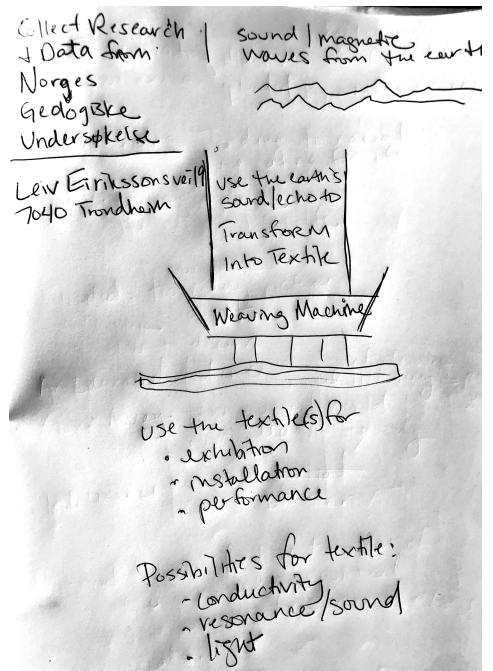 Collect Research
+ Data from
Norges
Geologiske
Undersøkelse
Leiv Eirikssons vei 19
7040 Trondheim
sound / magnetic
waves from the earth
use the earth's
sound/echo to
Transform
Into Textile
Weaving Machine
use the textile(s) for
• exhibition
• installation
• performance
Possibilities for textile:
- conductivity
• resonance/sound
• light